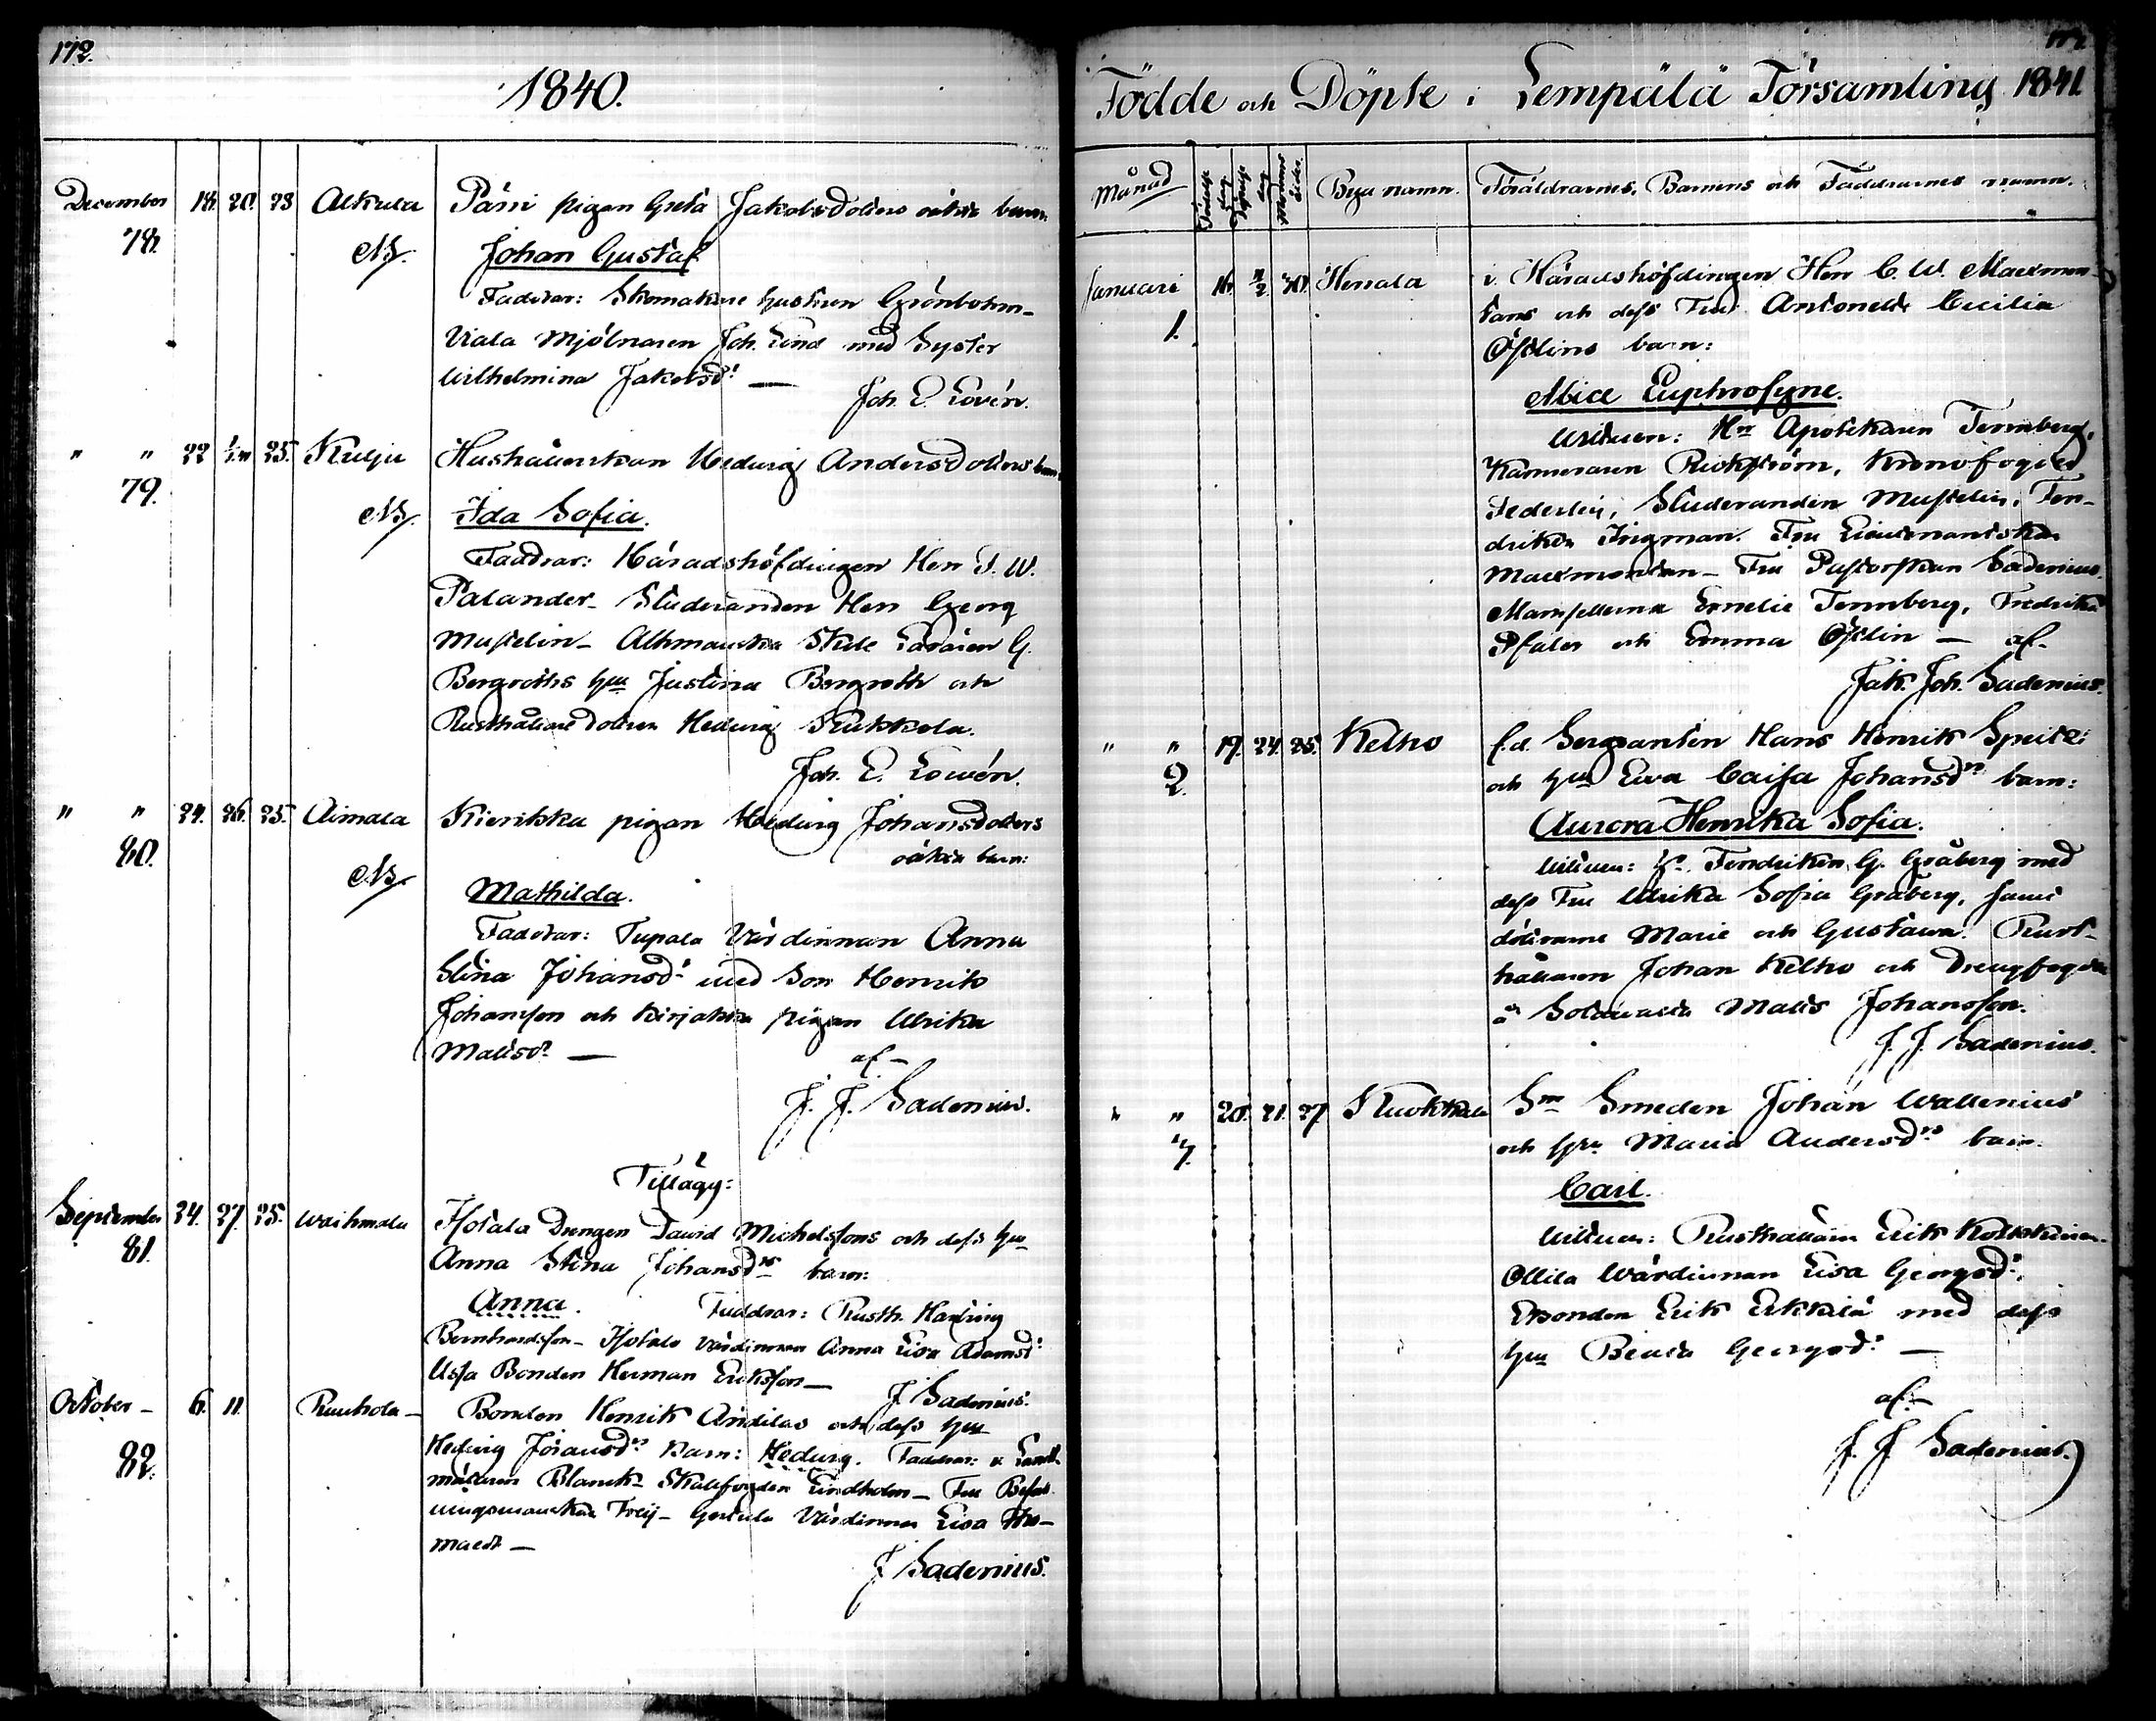 172.
1840.
December 18. 20. 23 Alkula Päri pigan Greta Jakobsdotters oäkta barn
78. NB. Johan Gustaf
Faddrar: Skomakare hustrun Grönbohm
Viala Mjölnaren Joh. Lind med Syster
Wilhelmina Jakobsd:r —
Joh. E. Lovén.
" " 22 25. Kulju Hushållerskan Hedvig Andersdotters barn
79.
NB. Ida Sofia.
Faddrar: Häradshöfdingen Herr J. W.
Palander — Studeranden Herr Georg
Mustelin — Althmanska Skole Läraren G.
Bergroths hu Justina Bergroth och
Rusthållare dottren Hedvig Kukkola.
Joh. E. Lovén.
" " 24. 26. 25. Aimala Kierikka pigan Hedvig Johansdotters
80. oäkta barn:
NB. Mathilda.
Faddrar: Tupala Värdinnan Anna
Stina Johansd:r med Son Henrik
Johansson och Kirjakka pigan Ulrika
Mattsd:r — af —
J. J. Sadenius.
Tillägg:
September 24. 27. 25. Waihmala Isotala Drengen David Michelssons och dess hu
81. Anna Stina Johansd:rs barn:
Anna. Faddrar: Rusth.
Bernhardsson — Isotalo värdinnan Anna Lisa Adamsd:r
Ussa Bonden Herman Eriksson —
J. Sadenius.
October — 6. 11. Ruuhola — Bonden Henrik Andilas och dess hu
82. Hedvig Göransd:rs Barn: Hedvig. Faddrar: v. Landt
mätaren Blanck — Skallfogden Lindholm — Fru Befall
ningsmanskan Freij — Gertula Värdinnan Lisa Tho-
masd:r —
J. Sadenius.
Födde och Döpte i Lempälä Församling 1841
Månad Födelse dag Döpelse dag Modrens ålder Bya namn. Föräldrarnes, Barnens och Faddrarnes namn.
Januari 16. 2/2 30. Herrala v. Häradshöfdingen Herr C. W. Maexmon-
1. tans och dess Fru Antonette Cecilia
Östlins barn:
Alice Euphrosyne.
Vittnen: Hr Apotekaren Tennberg,
Kamreraren Rickström, Kronofogden
Federley, Studeranden Mustelin, Fen-
driken Ingman. Fru Lieutenantskan
Maexmontan — Fru Pastorskan Sadenius.
Mamsellerna Emelie Tennberg, Fredrika
Pfaler och Emma Östlin — af —
Jak. Joh. Sadenius.
" " 19. 24. 25. Kelho f.d. Sergeanten Hans Henrik Speitz:
2. och hu Eva Caisa Johansd:rs barn:
Aurora Henrika Sofia.
Vittnen: Fendriken G. Gråberg med
dess Fru Ulrika Sofia Gråberg, samt
döttrarne Marie och Gustava. Rust-
hållaren Johan Kelho och Drengfogden
å Sotavalta Matts Johansson.
J. J. Sadenius.
" " 20. 21. 27. Kuokkala Sn Smeden Johan Wallenius
3. och hu Maria Andersd:rs barn:
Carl.
Vittnen: Rusthållaren Erik Kokkinen.
Ollila Wärdinnan Lisa Georgsd:r,
Bonden Erik Erkkilä med dess
hu Beata Georgsd:r —
af —
J. J. Sadenius.